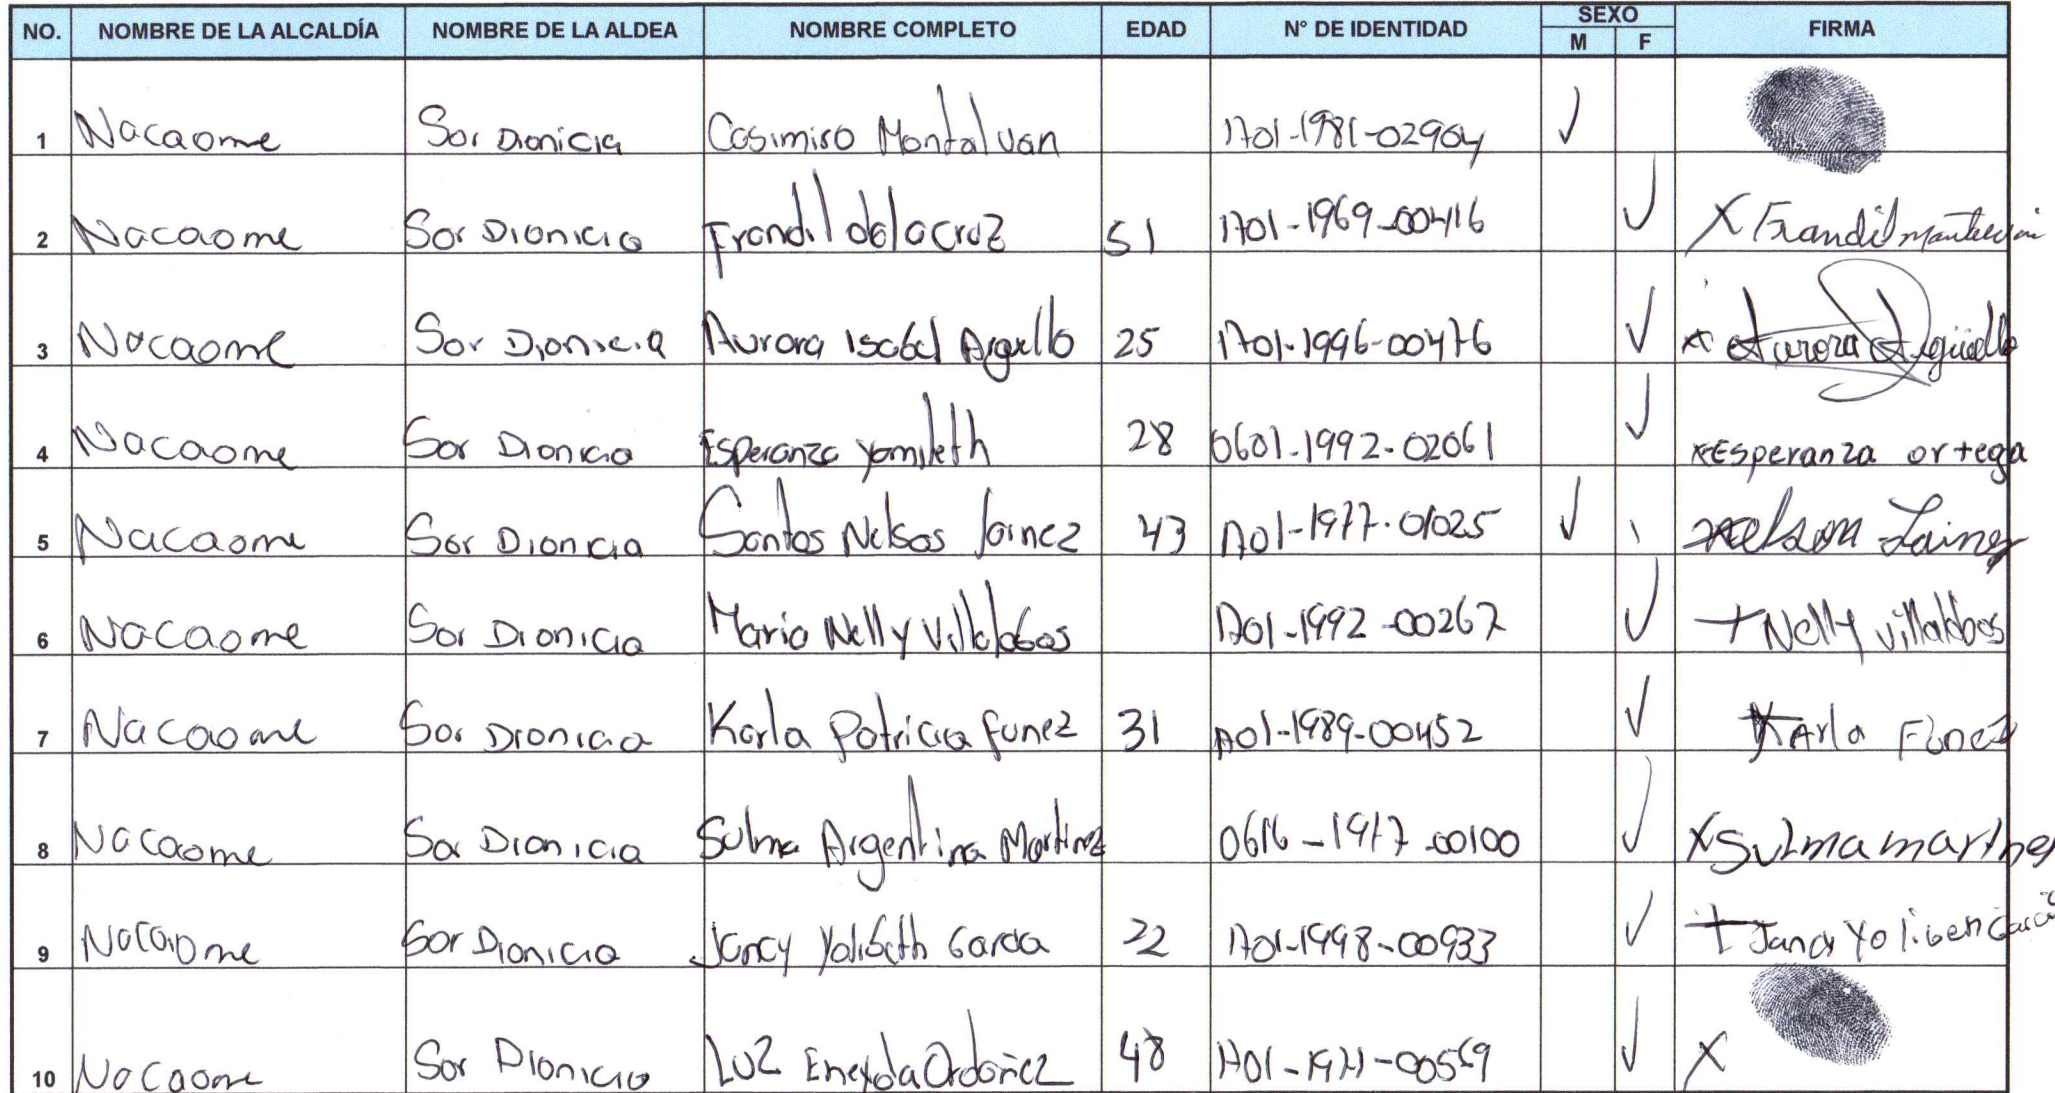 NO. NOMBRE DE LA ALCALDÍA NOMBRE DE LA ALDEA NOMBRE COMPLETO EDAD N° DE IDENTIDAD SEXO M F FIRMA
1 Nacaome Sor Dionicia Casimiro Montalvan 1701-1981-02904 ✓
2 Nacaome Sor Dionicio Frandil delacruz 51 1701-1969-00416 ✓ X Frandil
3 Nacaome Sor Dionicia Aurora Isabel Arguello 25 1701-1996-00476 ✓ x Aurora Argüello
4 Nacaome Sor Dionicio Esperanza yamileth 28 0601-1992-02061 ✓ xEsperanza ortega
5 Nacaome Sor Dionicia Santos Nelsos lainez 43 1701-1977-01025 ✓ Nelson Lainez
6 Nacaome Sor Dionicia Maria Nelly Villalobos 1701-1992-00267 ✓ +Nelly villalobos
7 Nacaome Sor Dionicia Karla Patricia funez 31 1701-1989-00452 ✓ KArla Funez
8 Nacaome Sor Dionicia Sulma Argentina Martinez -00100 ✓ XSulma martinez
9 Nacaome Sor Dionicia Jancy Yolibeth Garcia 22 1701-1998-00933 ✓ +
10 Nacaome Sor Dionicio Luz Ordoñez 48 ✓ X